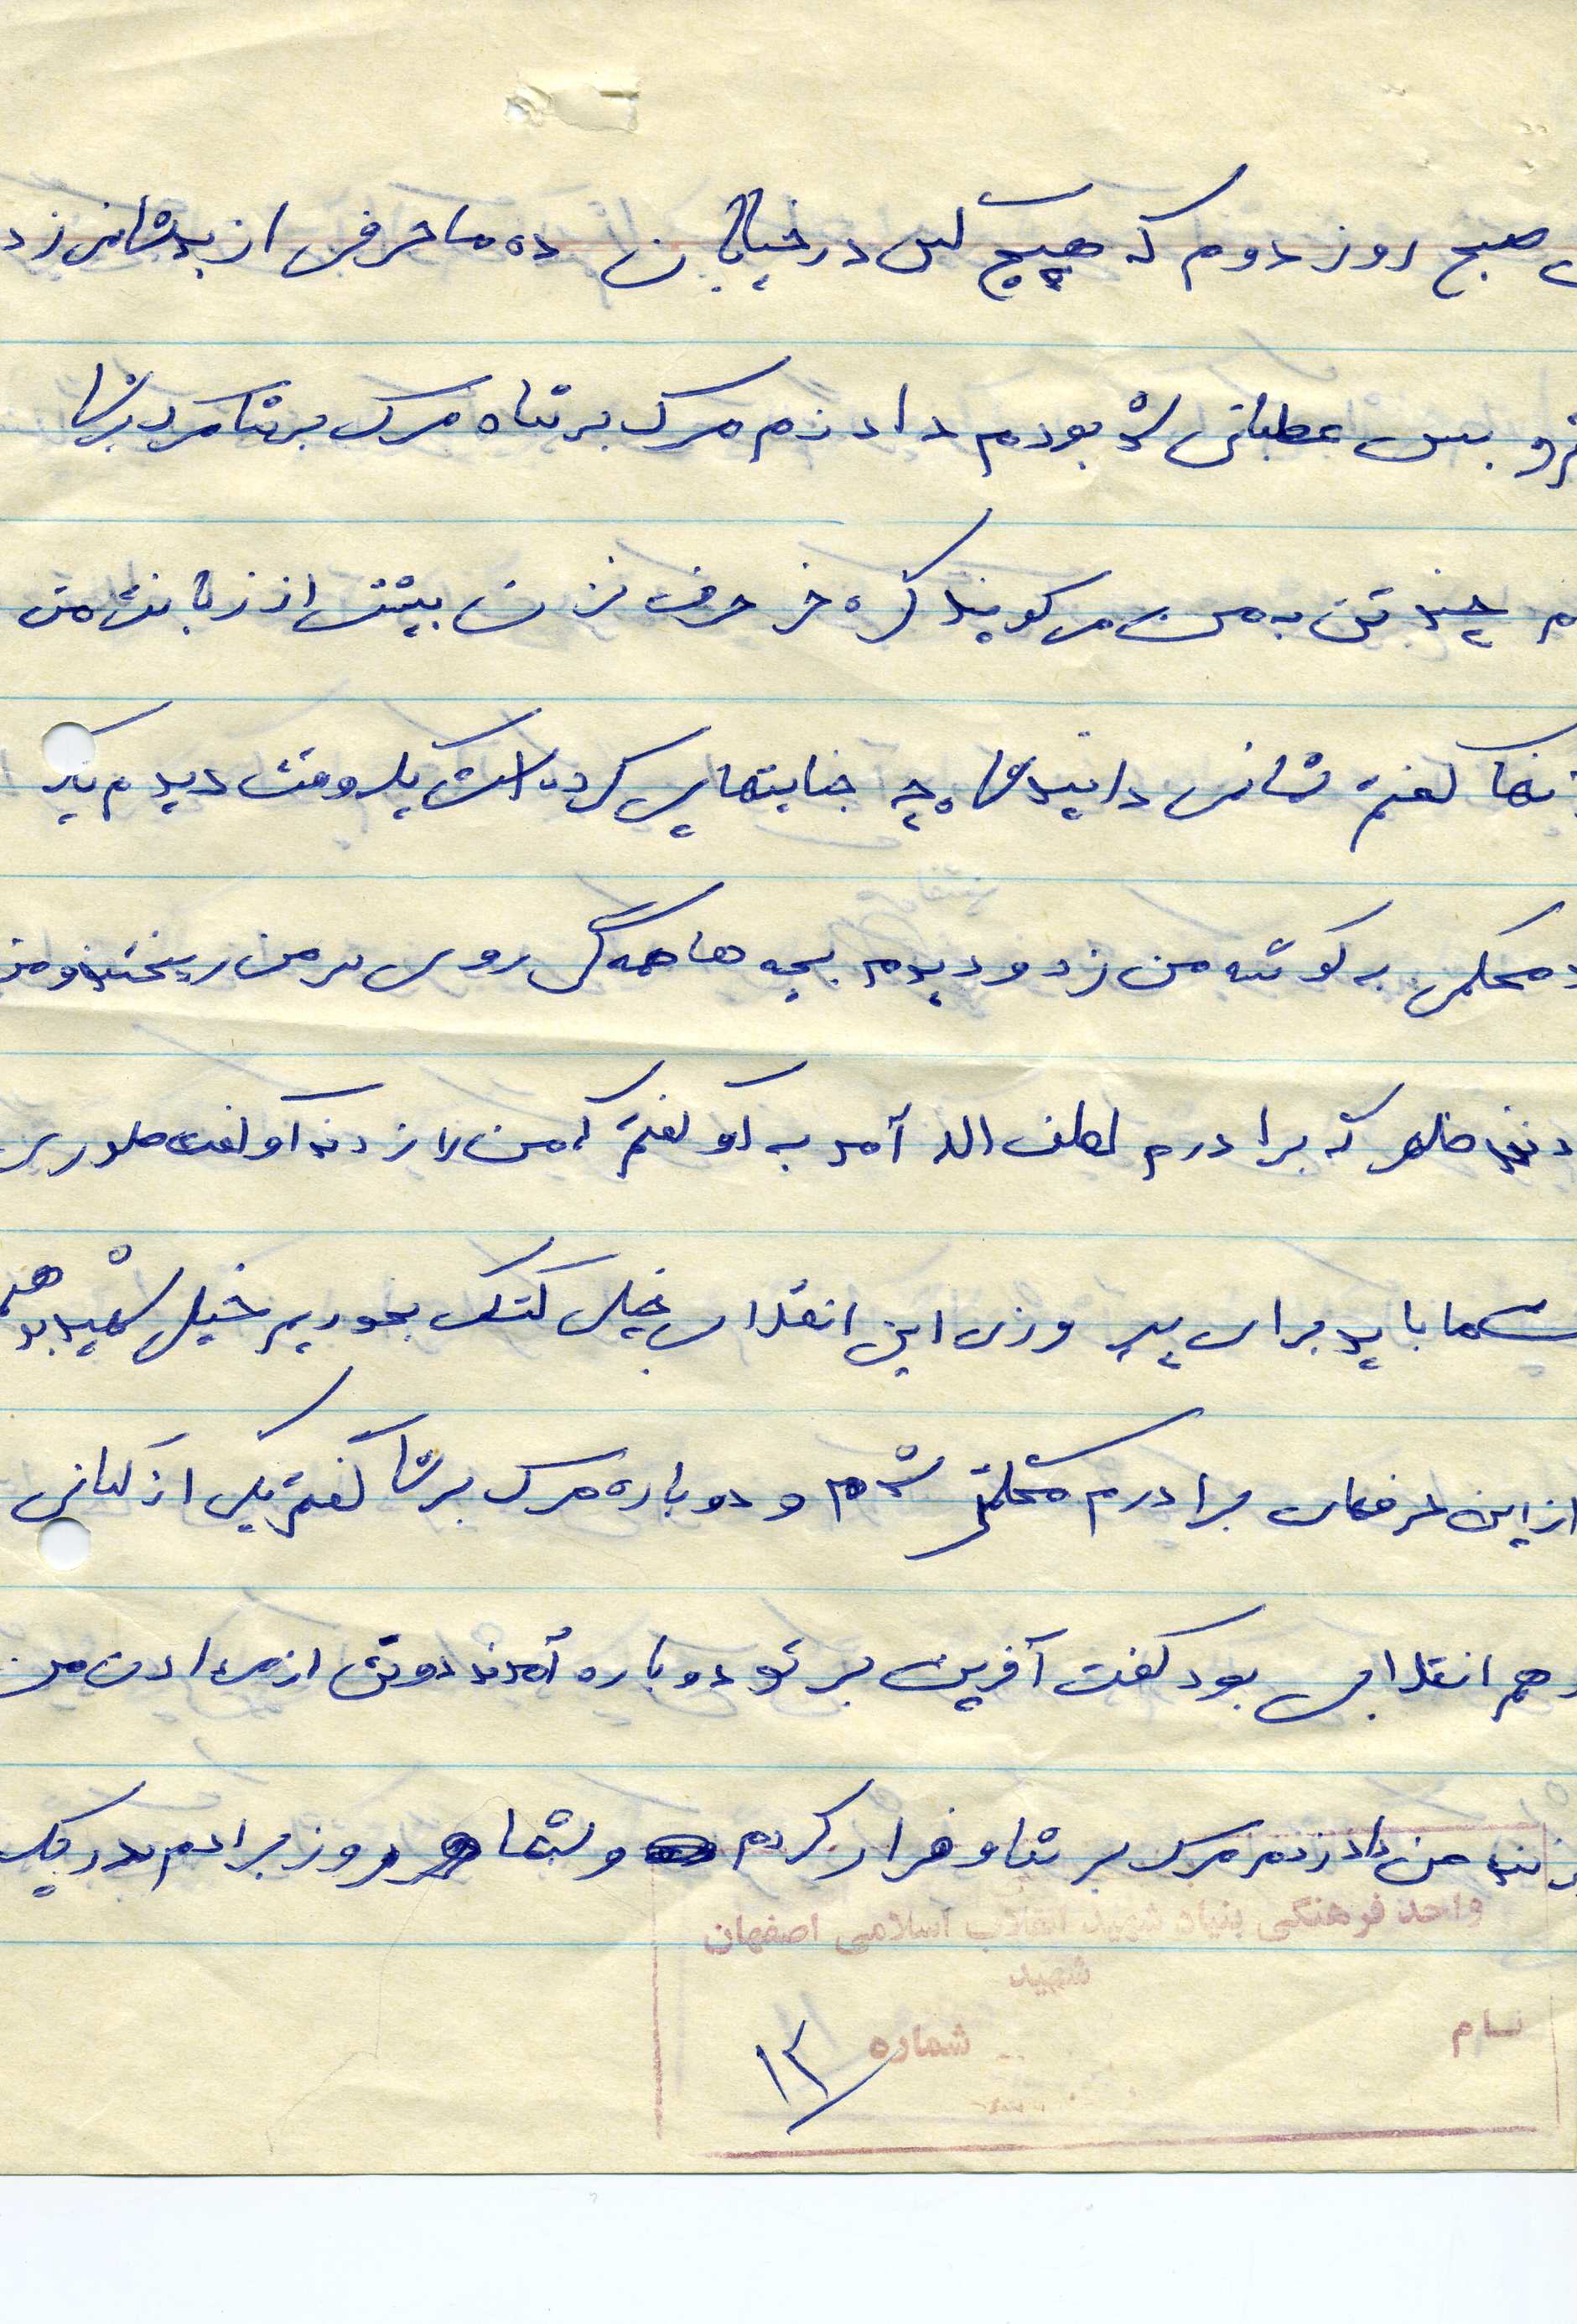 صبح روز دوم که هیچ کس در خیابان ده ما حرفی از بد شاه نمی زد
بس عطبانی شده بودم داد زدم مرگ بر شاه مرگ بر شاه مرگ بر شاه
چند تن به من می گویند کره خر حرف نزن بیشتر از زبانش من
گفتم شما نمی دانید شاه چه جنایتهایی کرده است یک وقت دیدم یک
محکمی به گوشه من زد و دیدم بچه ها همه گی روی سر من ریختند و من
ظهر که برادرم لطف الله آمد به او گفتم که من را زدند او گفت طوری
شما باید برای پیروزی این انقلاب خیلی کتک بخوریم خیلی شهید بدهیم
از این حرفهای برادرم خوشحال شدم و دوباره مرگ بر شاه گفتم یکی از کسانی
هم انقلابی بود گفت آفرین بر تو دوباره آمدند دو تن از مردان من
من داد زدم مرگ بر شاه و فرار کردم و روز برادرم در یک
واحد فرهنگی بنیاد شهید انقلاب اسلامی اصفهان
شهید
نام
شماره ۱۲